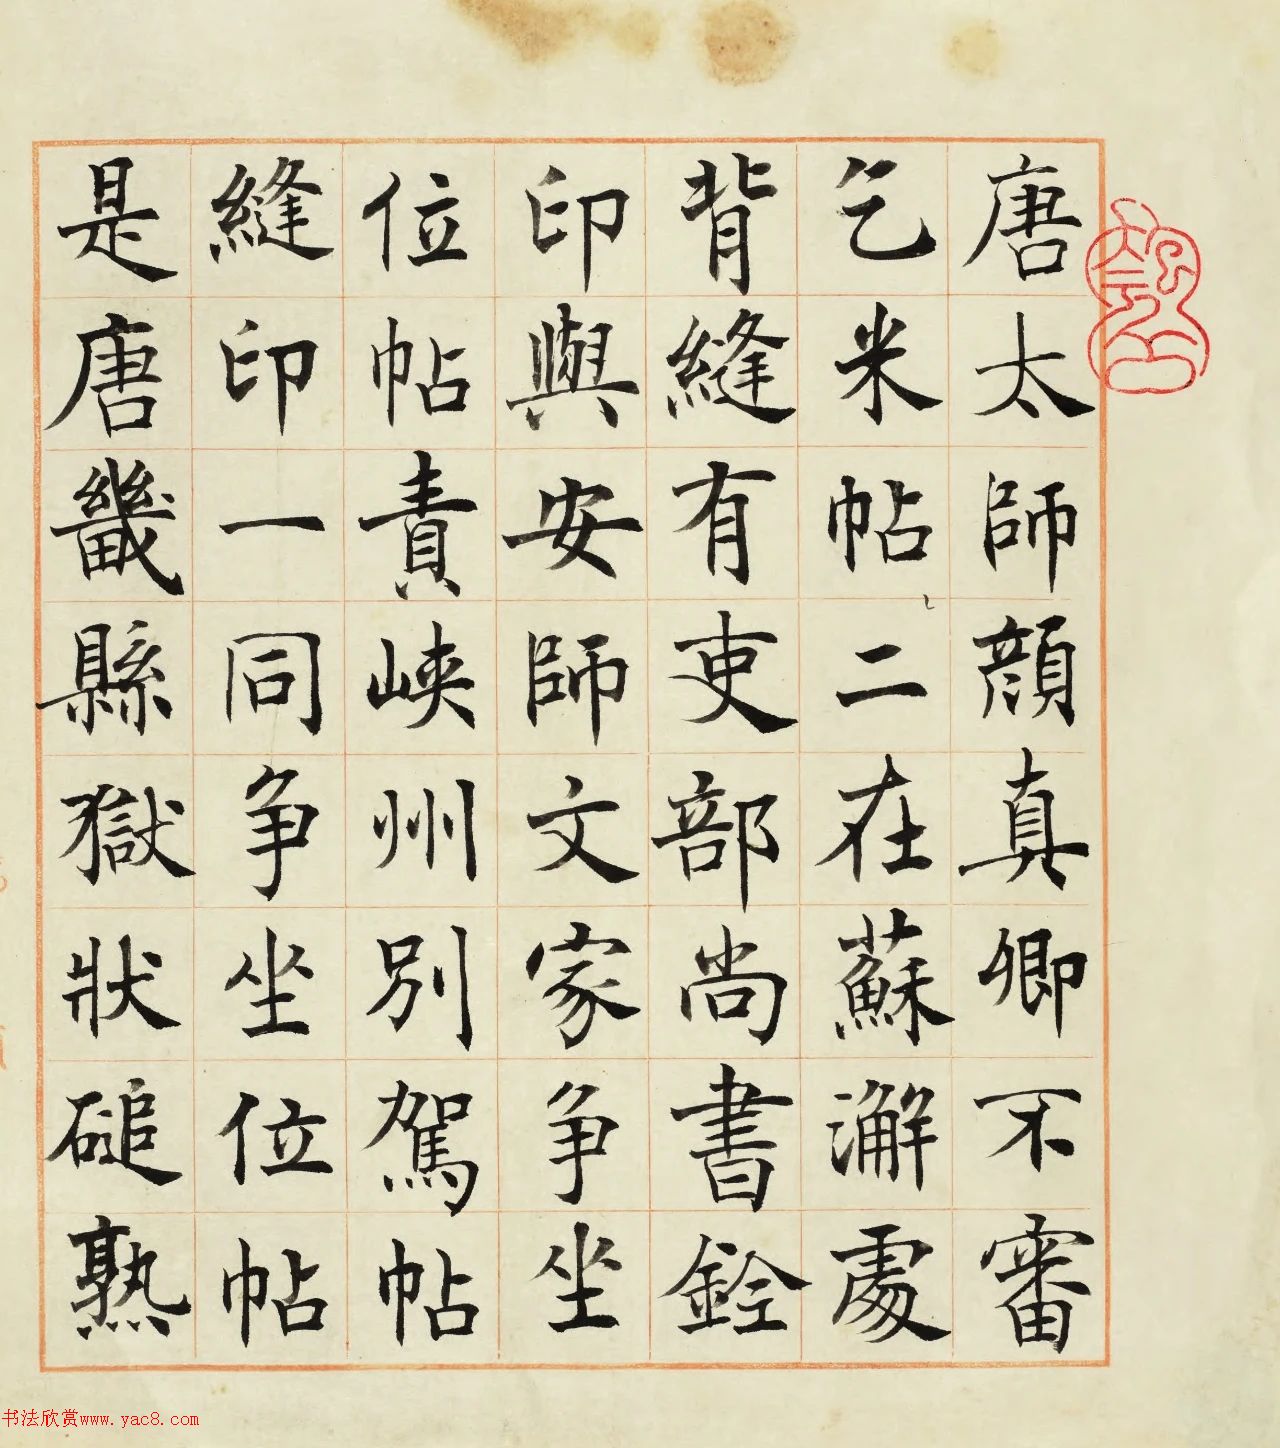 唐太師顔真卿不審
乞米帖二在蘇澥處
背縫有吏部尚書銓
印與安師文家争坐
位帖責峽州别駕帖
縫印一同争坐位帖
是唐畿縣獄狀磓熟
书法欣赏www.yac8.com